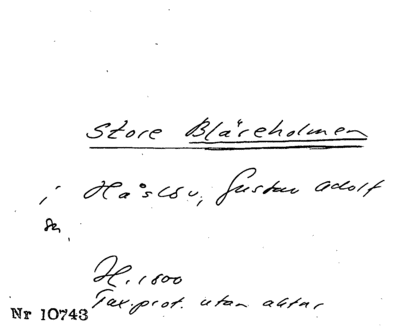 Store Bläreholmen
i Håslöv, Gustav Adolf
sn.
H. 1800
Tax.prot. utan aktnr
Nr 10743